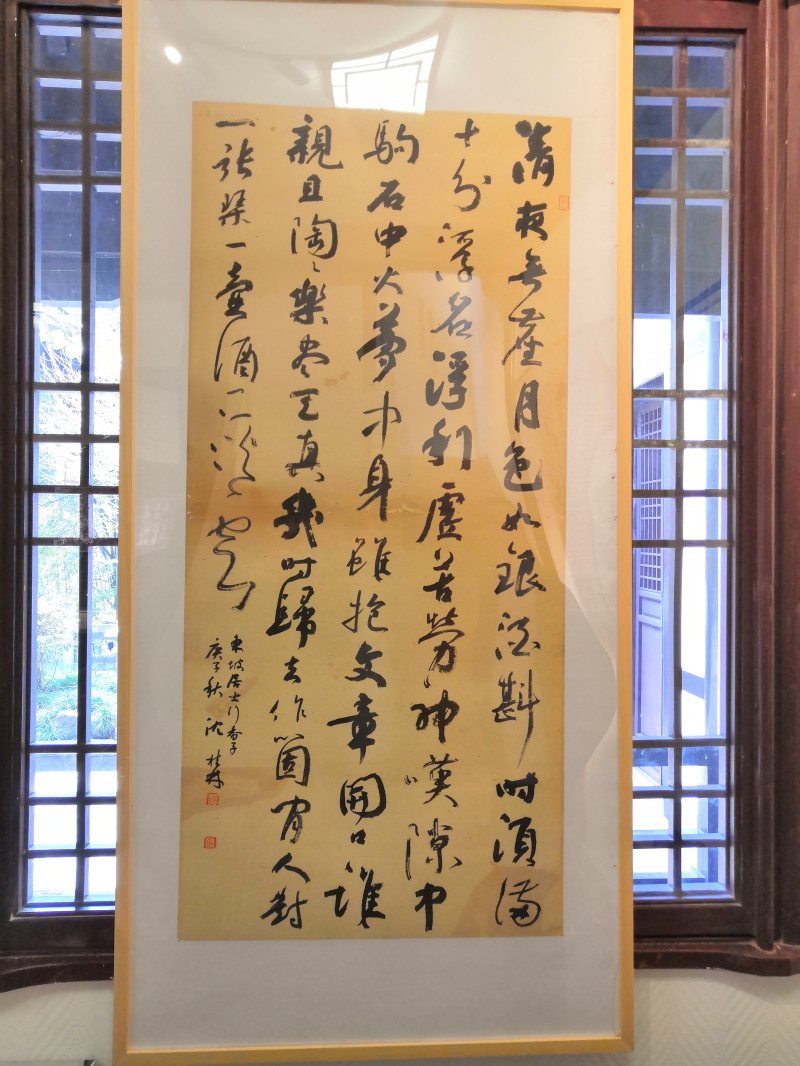 清夜無塵月色如銀酒斟時須滿
十分浮名浮利虛苦勞神嘆隙中
駒石中火夢中身雖抱文章開口誰
親且陶々樂盡天真幾時歸去作箇閒人對
一張琴一壺酒一溪雲
東坡居士行香子
庚子秋 沈桂林